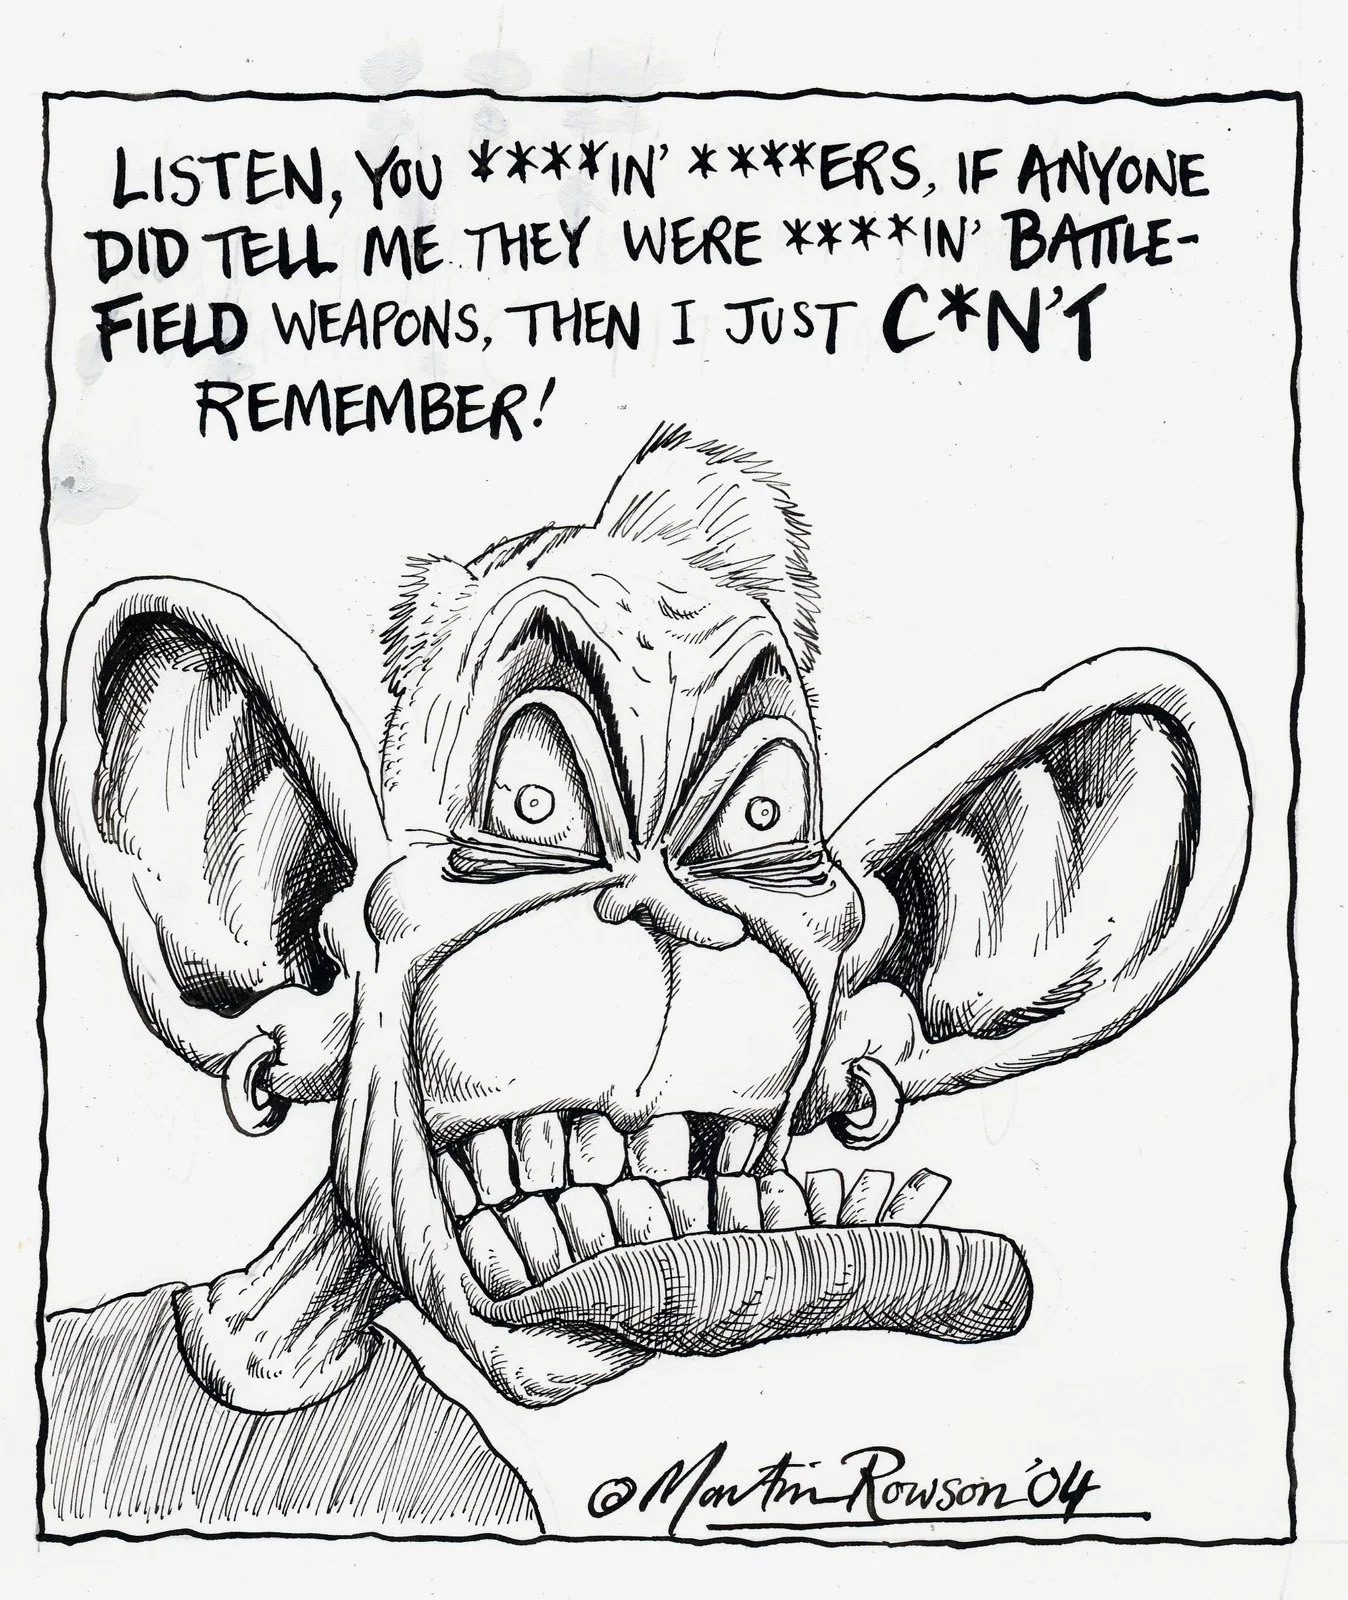 LISTEN, YOU ****IN' ****ERS, IF ANYONE
DID TELL ME THEY WERE ****IN' BATTLE-
FIELD WEAPONS, THEN I JUST C*N'T
REMEMBER!
© Martin Rowson '04